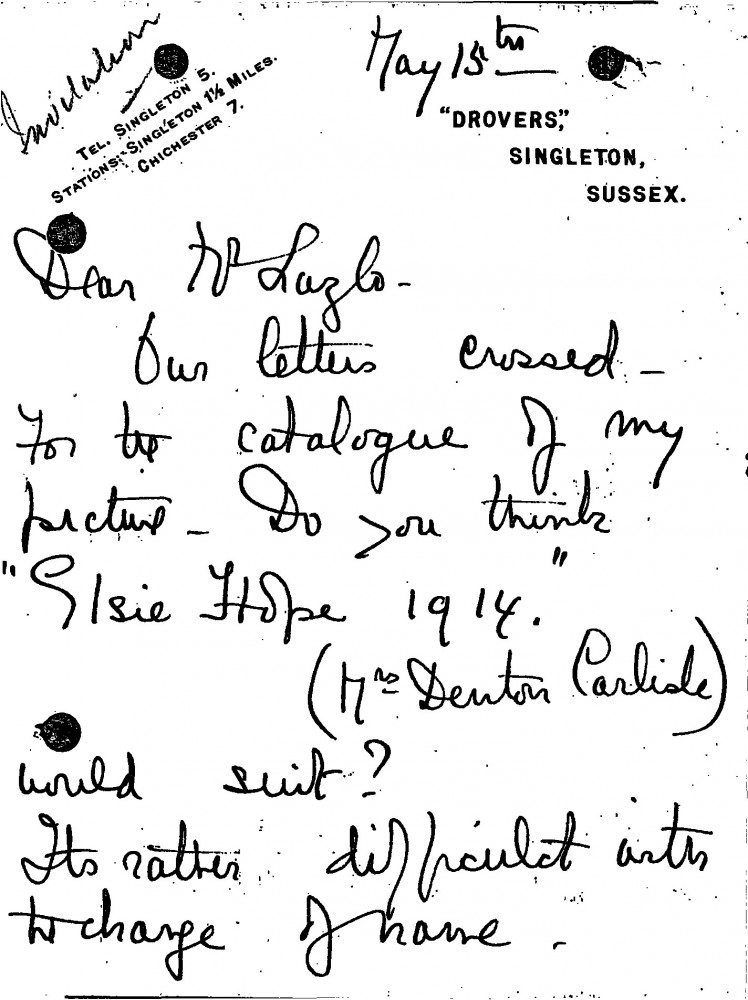 Invitation
TEL. SINGLETON 5.
STATIONS: SINGLETON 1½ MILES.
CHICHESTER 7.
May 15th
"DROVERS,"
SINGLETON,
SUSSEX.
Dear Mr Lazlo -
Our letters crossed -
For the catalogue of my
picture - Do you think
"Elsie Hope 1914."
(Mrs Denton Carlisle)
would suit?
Its rather difficult with
the change of name -